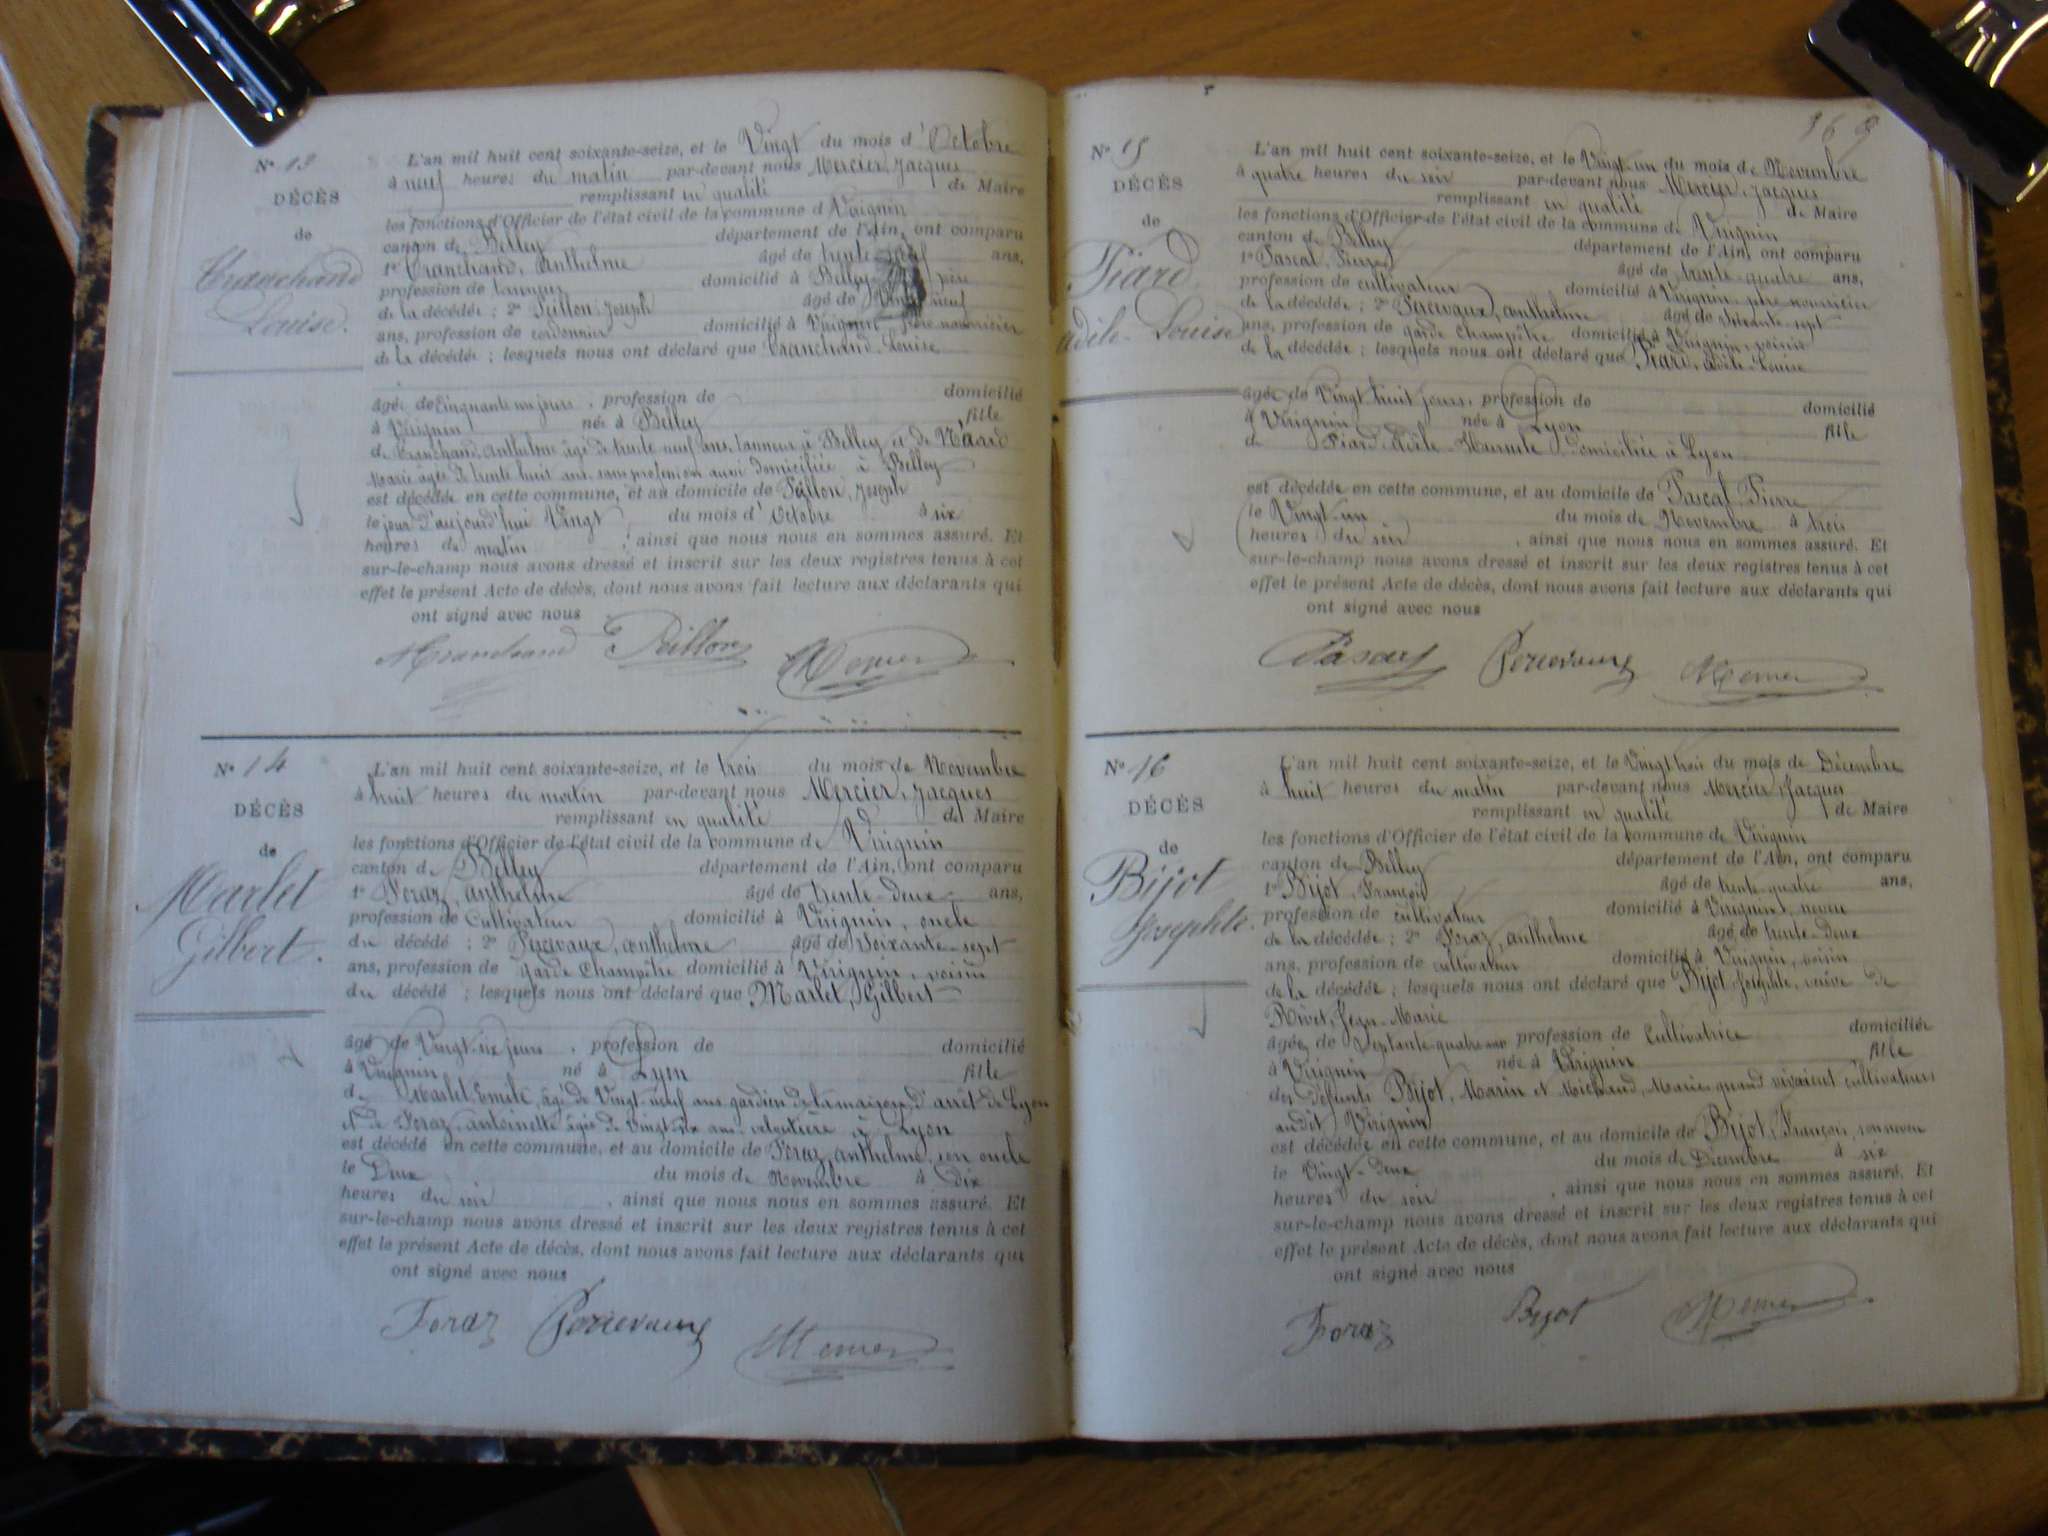 N° 13
DÉCÈS
de
Tranchand
Louise.
L'an mil huit cent soixante-seize, et le Vingt du mois d'Octobre
à neuf heures du matin par-devant nous Mercier, Jacques
remplissant en qualité de Maire
les fonctions d'Officier de l'état civil de la commune d Virignin
canton de Belley département de l'Ain, ont comparu
1° Tranchand, Anthelme âgé de trente neuf ans,
profession de tanneur domicilié à Belley père
de la décédée ; 2° Peillon Joseph âgé de neuf
ans, profession de cordonnier domicilié à Virignin, père nourricier
de la décédée ; lesquels nous ont déclaré que Tranchand Louise
âgée de cinquante un jours, profession de domicilié
à Virignin née à Belley fille
de Tranchand, Anthelme âgé de trente neuf ans, tanneur à Belley et de
Marie âgée de trente huit ans, sans profession aussi domiciliée à Belley
est décédée en cette commune, et au domicile de Peillon, Joseph
le jour d'aujourd'hui Vingt du mois d'Octobre à six
heures du matin, ainsi que nous nous en sommes assuré. Et
sur-le-champ nous avons dressé et inscrit sur les deux registres tenus à cet
effet le présent Acte de décès, dont nous avons fait lecture aux déclarants qui
ont signé avec nous
Tranchand Peillon Mercier
N° 14
DÉCÈS
de
Marlet
Gilbert.
L'an mil huit cent soixante-seize, et le trois du mois de Novembre
à huit heures du matin par-devant nous Mercier, Jacques
remplissant en qualité de Maire
les fonctions d'Officier de l'état civil de la commune de Virignin
canton de Belley département de l'Ain, ont comparu
1° Foraz, anthelme âgé de trente-deux ans,
profession de Cultivateur domicilié à Virignin, oncle
du décédé ; 2° Percevaux, anthelme âgé de Soixante-sept
ans, profession de garde Champêtre domicilié à Virignin, voisin
du décédé ; lesquels nous ont déclaré que Marlet, Gilbert
âgé de Vingt-six jours, profession de domicilié
à Virignin né à Lyon fille
de Marlet Emile, âgé de Vingt-neuf ans gardien de la maison d'arrêt de Lyon
et de Foraz, antoinette âgée de Vingt-six ans, giletière à Lyon
est décédé en cette commune, et au domicile de Foraz, anthelme, son oncle
le Deux du mois de Novembre à Dix
heures du soir, ainsi que nous nous en sommes assuré. Et
sur-le-champ nous avons dressé et inscrit sur les deux registres tenus à cet
effet le présent Acte de décès, dont nous avons fait lecture aux déclarants qui
ont signé avec nous
Foraz Percevaux Mercier
169
N° 15
DÉCÈS
de
Fiard
adèle-Louise
L'an mil huit cent soixante-seize, et le Vingt-un du mois de Novembre
à quatre heures du soir par-devant nous Mercier, Jacques
remplissant en qualité de Maire
les fonctions d'Officier de l'état civil de la commune de Virignin
canton de Belley département de l'Ain, ont comparu
1° Pascal, Pierre âgé de trente-quatre ans,
profession de cultivateur domicilié à Virignin père nourricier
de la décédée ; 2° Percevaux, anthelme âgé de soixante-sept
ans, profession de garde Champêtre domicilié à Virignin, voisin
de la décédée ; lesquels nous ont déclaré que Fiard, Adèle-Louise
âgée de Vingt huit jours, profession de domicilié
à Virignin née à Lyon fille
de Fiard Adèle domiciliée à Lyon
est décédée en cette commune, et au domicile de Pascal, Pierre
le Vingt-un du mois de Novembre à trois
heures du soir, ainsi que nous nous en sommes assuré. Et
sur-le-champ nous avons dressé et inscrit sur les deux registres tenus à cet
effet le présent Acte de décès, dont nous avons fait lecture aux déclarants qui
ont signé avec nous
Pascal Percevaux Mercier
N° 16
DÉCÈS
de
Bijot
Josephte.
L'an mil huit cent soixante-seize, et le Vingt trois du mois de Décembre
à huit heures du matin par-devant nous Mercier, Jacques
remplissant en qualité de Maire
les fonctions d'Officier de l'état civil de la commune de Virignin
canton de Belley département de l'Ain, ont comparu
1° Bijot, François âgé de trente-quatre ans,
profession de cultivateur domicilié à Virignin, neveu
de la décédée ; 2° Foraz, anthelme âgé de trente-deux
ans, profession de cultivateur domicilié à Virignin, voisin
de la décédée ; lesquels nous ont déclaré que Bijot Josephte, veuve de
Rivet, Jean-Marie
âgée de Septante-quatre ans profession de Cultivatrice domiciliée
à Virignin née à Virignin fille
des défunts Bijot, Marin et Michaud, Marie quand vivaient cultivateurs
audit Virignin
est décédée en cette commune, et au domicile de Bijot, François, son neveu
le Vingt-deux du mois de Décembre à six
heures du soir, ainsi que nous nous en sommes assuré. Et
sur-le-champ nous avons dressé et inscrit sur les deux registres tenus à cet
effet le présent Acte de décès, dont nous avons fait lecture aux déclarants qui
ont signé avec nous
Foraz Bijot Mercier